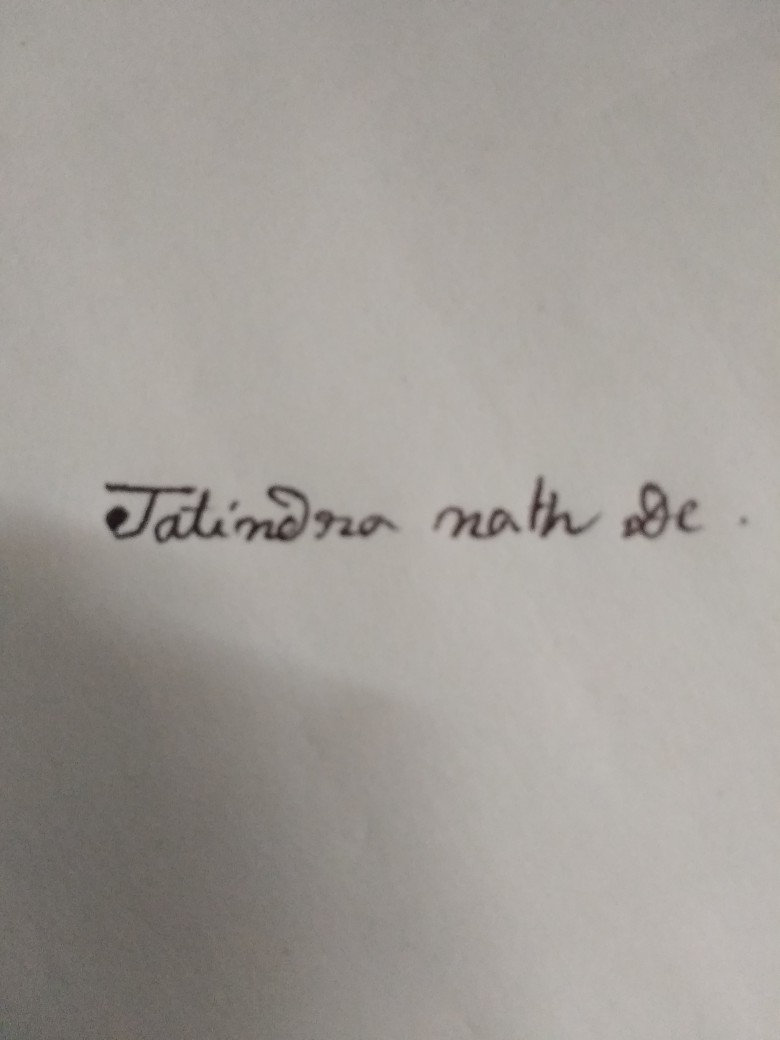 Jatindra nath De .